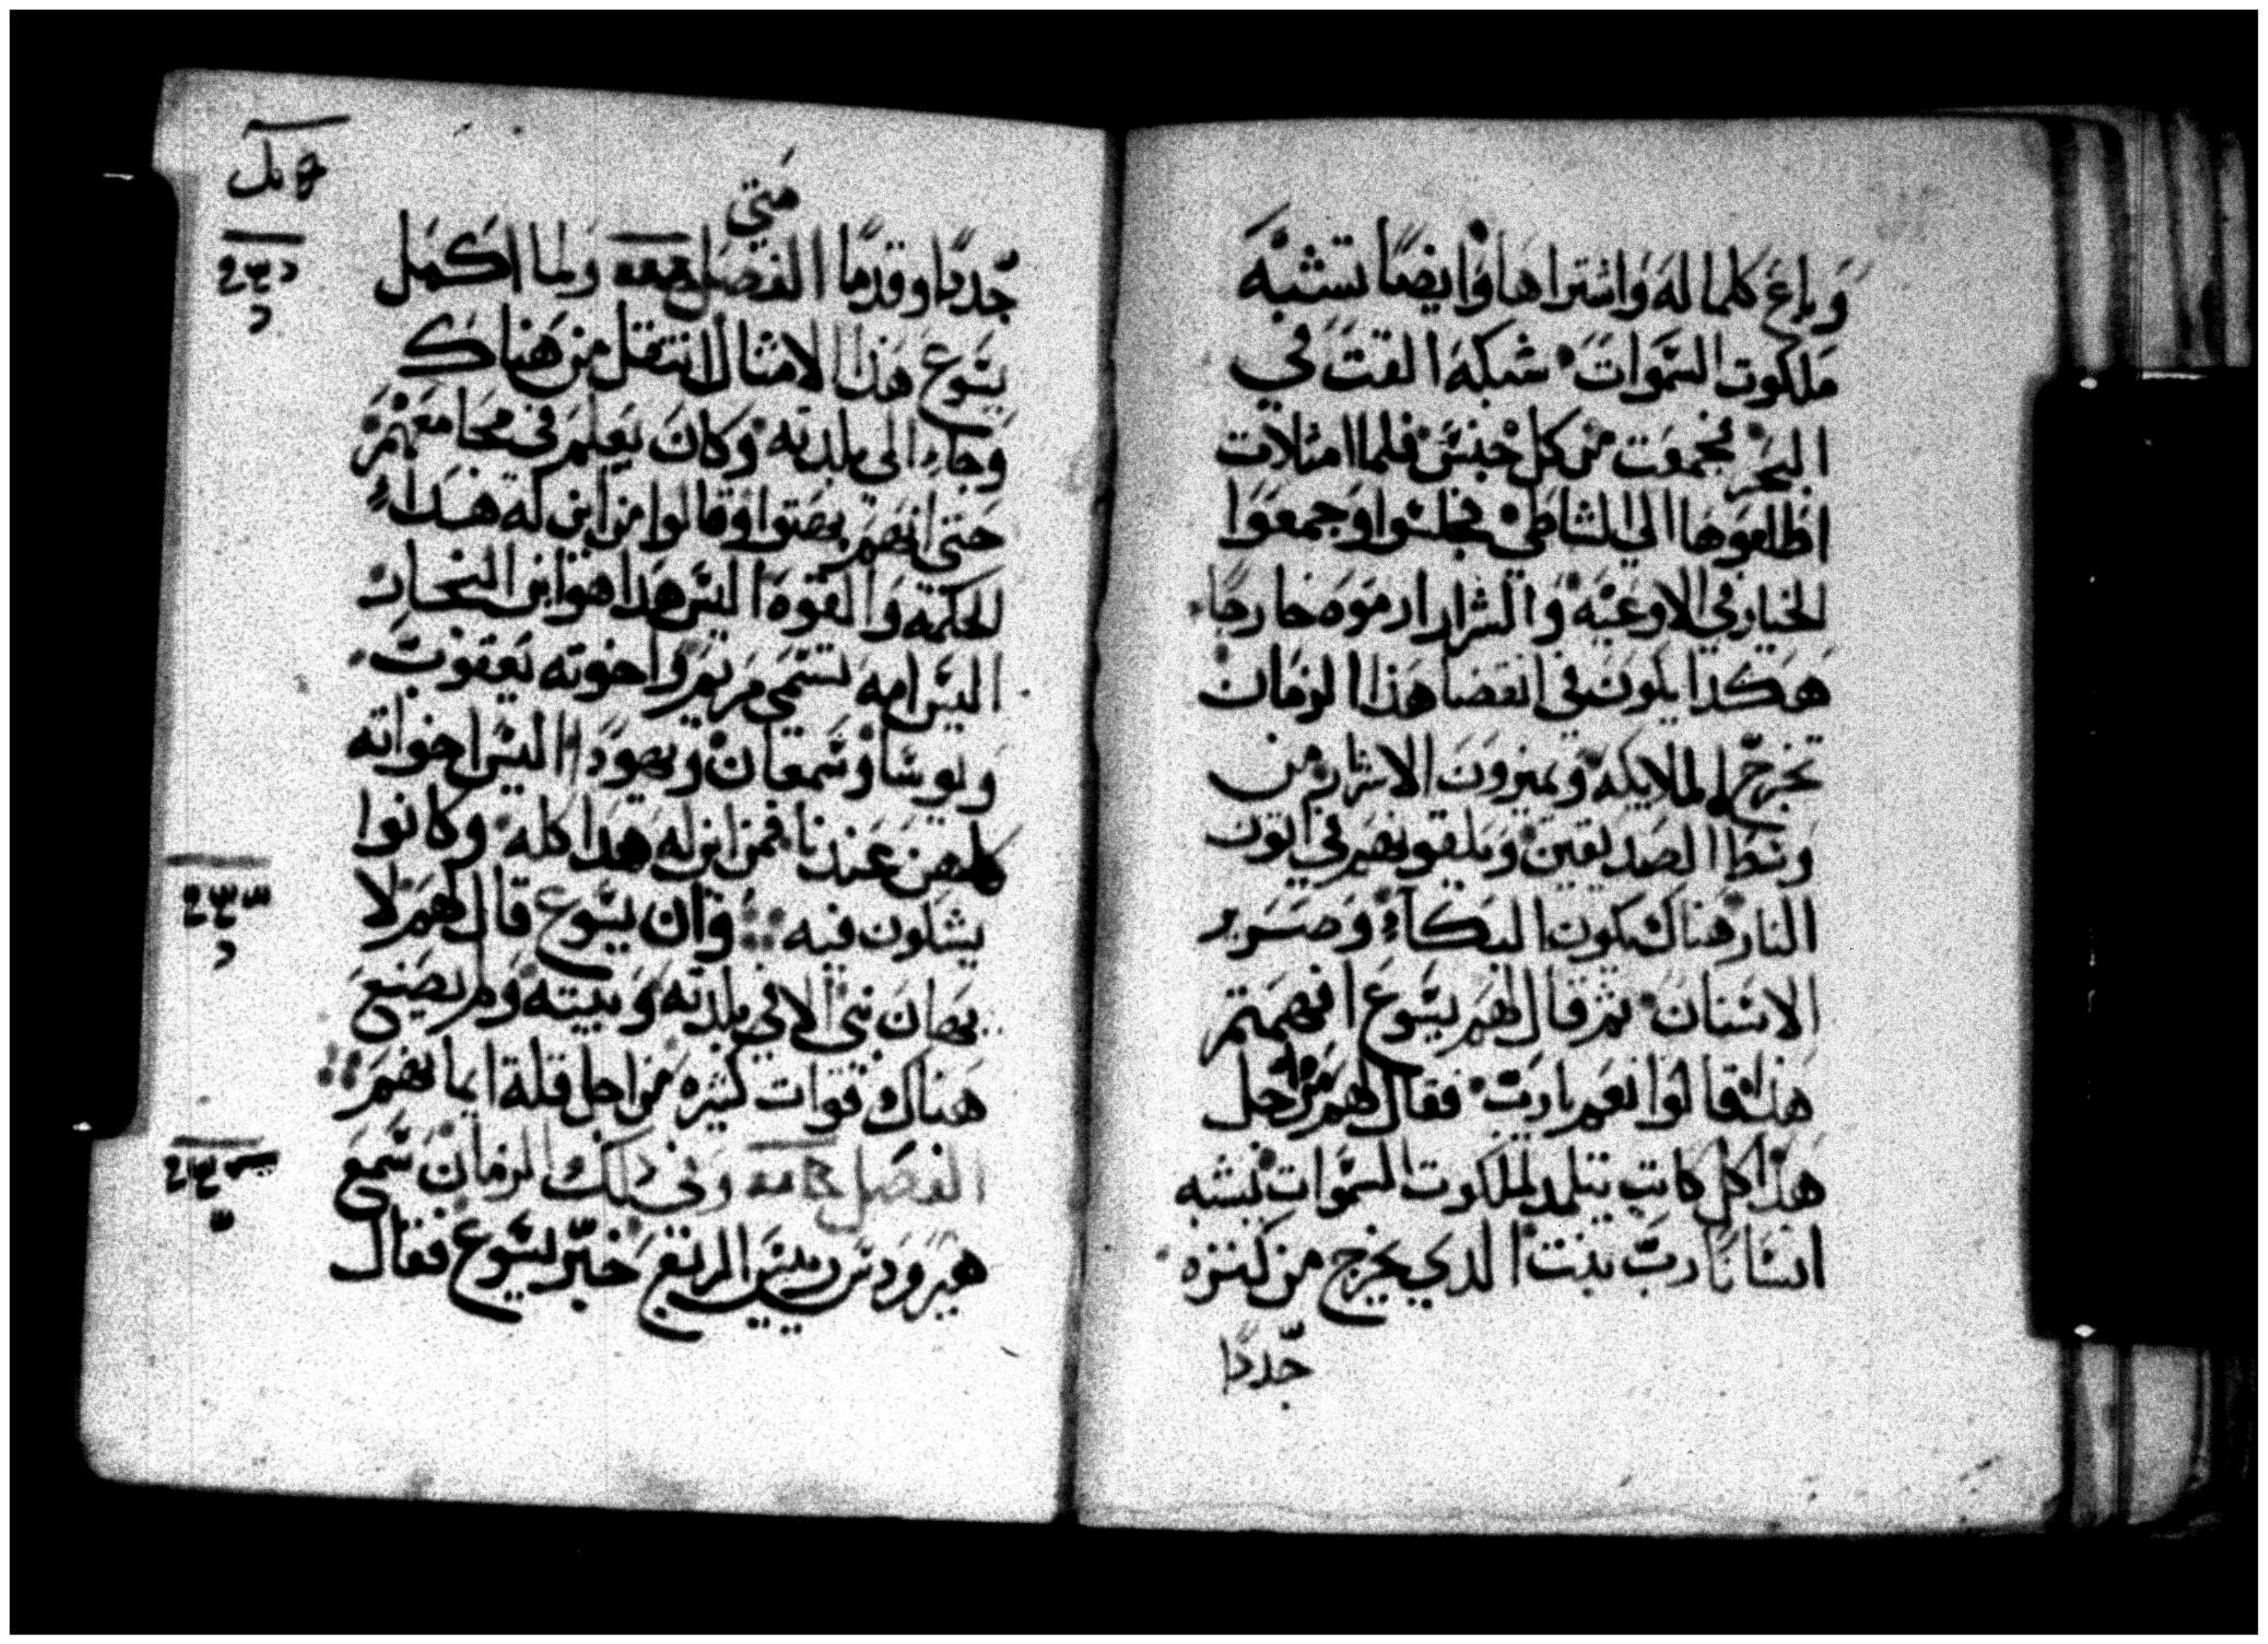 وباع كلما له واشتراها وايضًا تشبه
ملكوت السموات شبكه القت في
البحر فجمعت من كل جنس فلما امتلات
اطلعوها الي الشاطي فجلسوا وجمعوا
الخيار في الاوعيه والشرار ارموه خارجًا
هكذا يكون في انقضا هذا الزمان
تخرج الملايكه ويميزون الاشرار من
وسط الصديقين ويلقونهم في اتون
النار هناك يكون البكاء وصرير
الاسنان ثم قال لهم يسوع افهمتم
هذا قالوا نعم يارب فقال لهم من اجل
هذا كل كاتب يتلمد لملكوت السموات يشبه
انسانًا رب بيت الدي يخرج من كنزه
جددًا
متي
جددًا وقدمًا الفصل ولما اكمل
يسوع هذا الامثال انتقل من هناك
وجاء الى بلدته وكان يعلم في مجامعهم
حتى انهم بهتوا وقالوا من اين له هداء
الحكمه والقوه اليس هدا هو ابن النجار
اليس امه تسمى مريم واخوته يعقوب
ويوسا وسمعان ويهودا اليس اخواته
كلهن عندنا فمن اين له هدا كله وكانوا
يشكون فيه وان يسوع قال لهم لا
يهان نبي الا في بلدته وبيته ولم يصنع
هناك قوات كثيره من اجل قلة ايمانهم
الفصل وفي دلك الزمان سمع
هيرودس رييس المربع خبر يسوع فقال